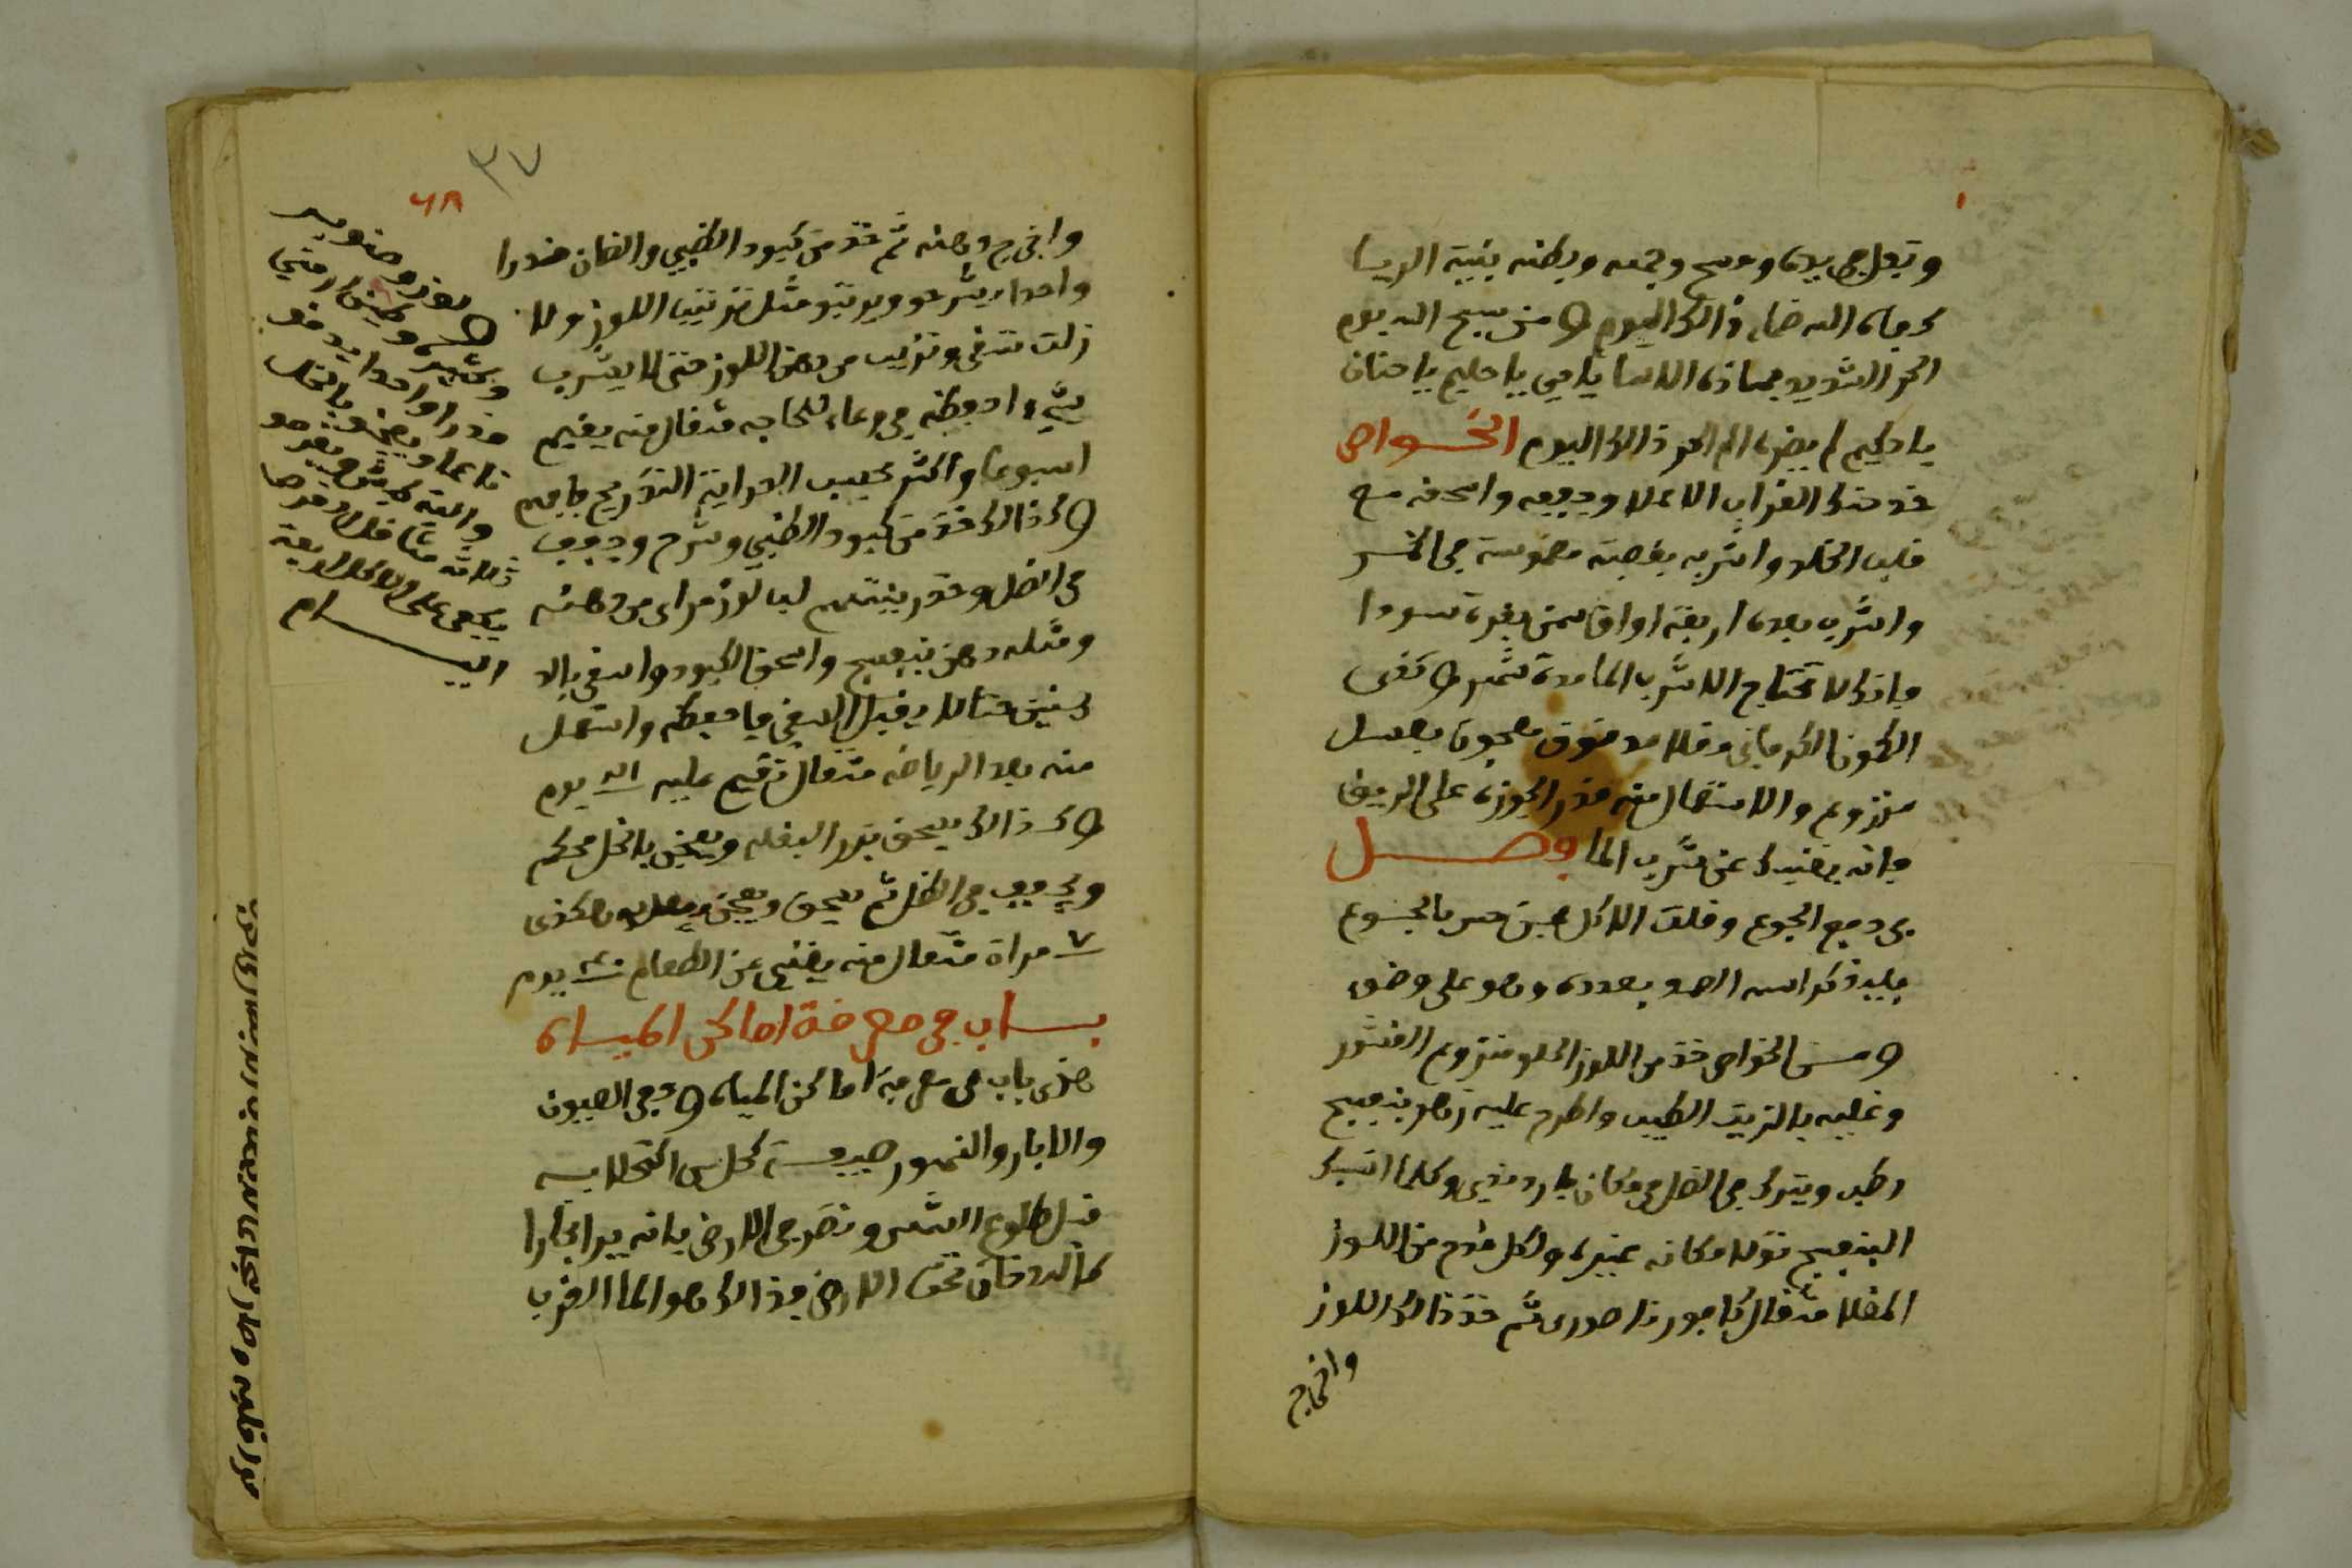 وتجعل في يدك وامسح وجهه وبطنه بنية الريسا
كرماء الله ضماء ذالك اليوم ومن يسبح الله يوم
الحر الشديد بهاذه الاسما يا حي يا حليم يا حنان
يا حكيم لم يضره الم الحر ذالك اليوم الخواص
خذ حنك الغراب الاعلا وجففه واسحقه مع
قلب الخلد واشربه بفصة مغموسة في الخمر
واشرب بعده اربعة اواق سمن بقرة سودا
فانك لا تحتاج الا شرب الما مدة شهر و تغنى
الكمون الكرماني مقلا مدقوق معجون بعسل
منزوع والاستعمال منه قدر الجوزة على الريق
فانه يغنيك عن شرب الما وصل
في دفع الجوع وقلت الاكل فمن حس بالجوع
فليذكر اسمه الصمد بعدده وهو على وضوء
ومن الخواص خذ من اللوز الحلو منزوع القشور
وغليه بالزيت الطيب واطرح عليه زهر بنفسج
رطب ويترك في الظل في مكان بارد ندي وكلما انسك
البنفسج تولا مكانه غيره ولكل قدح من اللوز
المقلا مثقال كافور قاصوري ثم خذ ذالك اللوز
واخرج
٣٧
٦٨
واخرج دهنه ثم خذ من كبود الظبي والضان قدرا
واحدا يشرحو ويربتو مثل تربيب اللوز ولا
زلت تسقي وتربب من دهن اللوز حتى لا يشرب
شيء احفظه في وعاء للحاجه مثقال منه يقيم
اسبوعا واكثر بحسب الحراية التدريج فافهم
وكذالك خذ من كبود الظبي وشرح وجفف
في الظل وخذ بينهم لب لوز مراي من دهنه
ومثله دهن بنفسج واسحق الكبود واسقي بالد
هنين حتا لا يقبل السقي فاحفظه واستعمل
منه بعد الرياضه مثقال تقيم عليه اله يوم
وكذالك يسحق بزر البقله ويعجن بالخل محكم
ويجفف في الظل ثم يسحق ويعجن يفعل به هكذى
٧ مراة مثقال منه يغني عن الطعام ٤٠ يوم
بساب في معرفة اماكن المياه
هذى باب في معرفة اماكن المياه وهي العيون
والابار والنهور صيفة كحل من اكتحلا به
قبل طلوع الشمس ونضر في الارض فانه يرا بخارا
كما الدخان تحت الارض فذالك هو الما القرب
لوز وصنوبر
وكثيره وطين ارمني
قدرا واحدا يدقو
ناعما ويعجنو بالخل
والية كبش ويقرصو
ثلاثه مثاقل القرصا
يكفي على الاكل اربعة
ايـــام